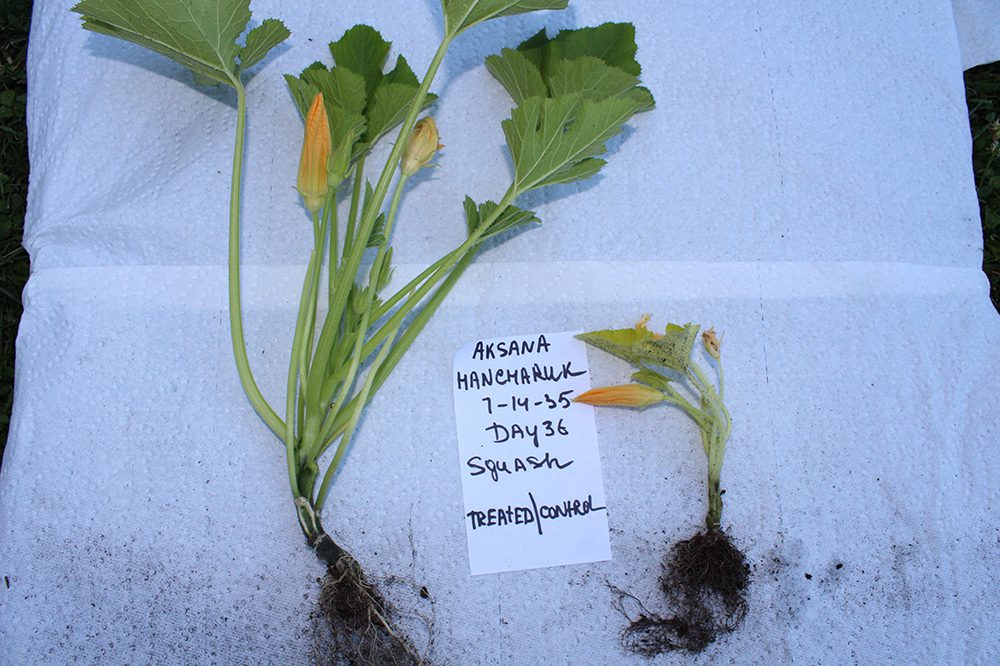 AKSANA
HANCHARUK
7-14-35
DAY 36
SquASh
TREATED/CONTROL